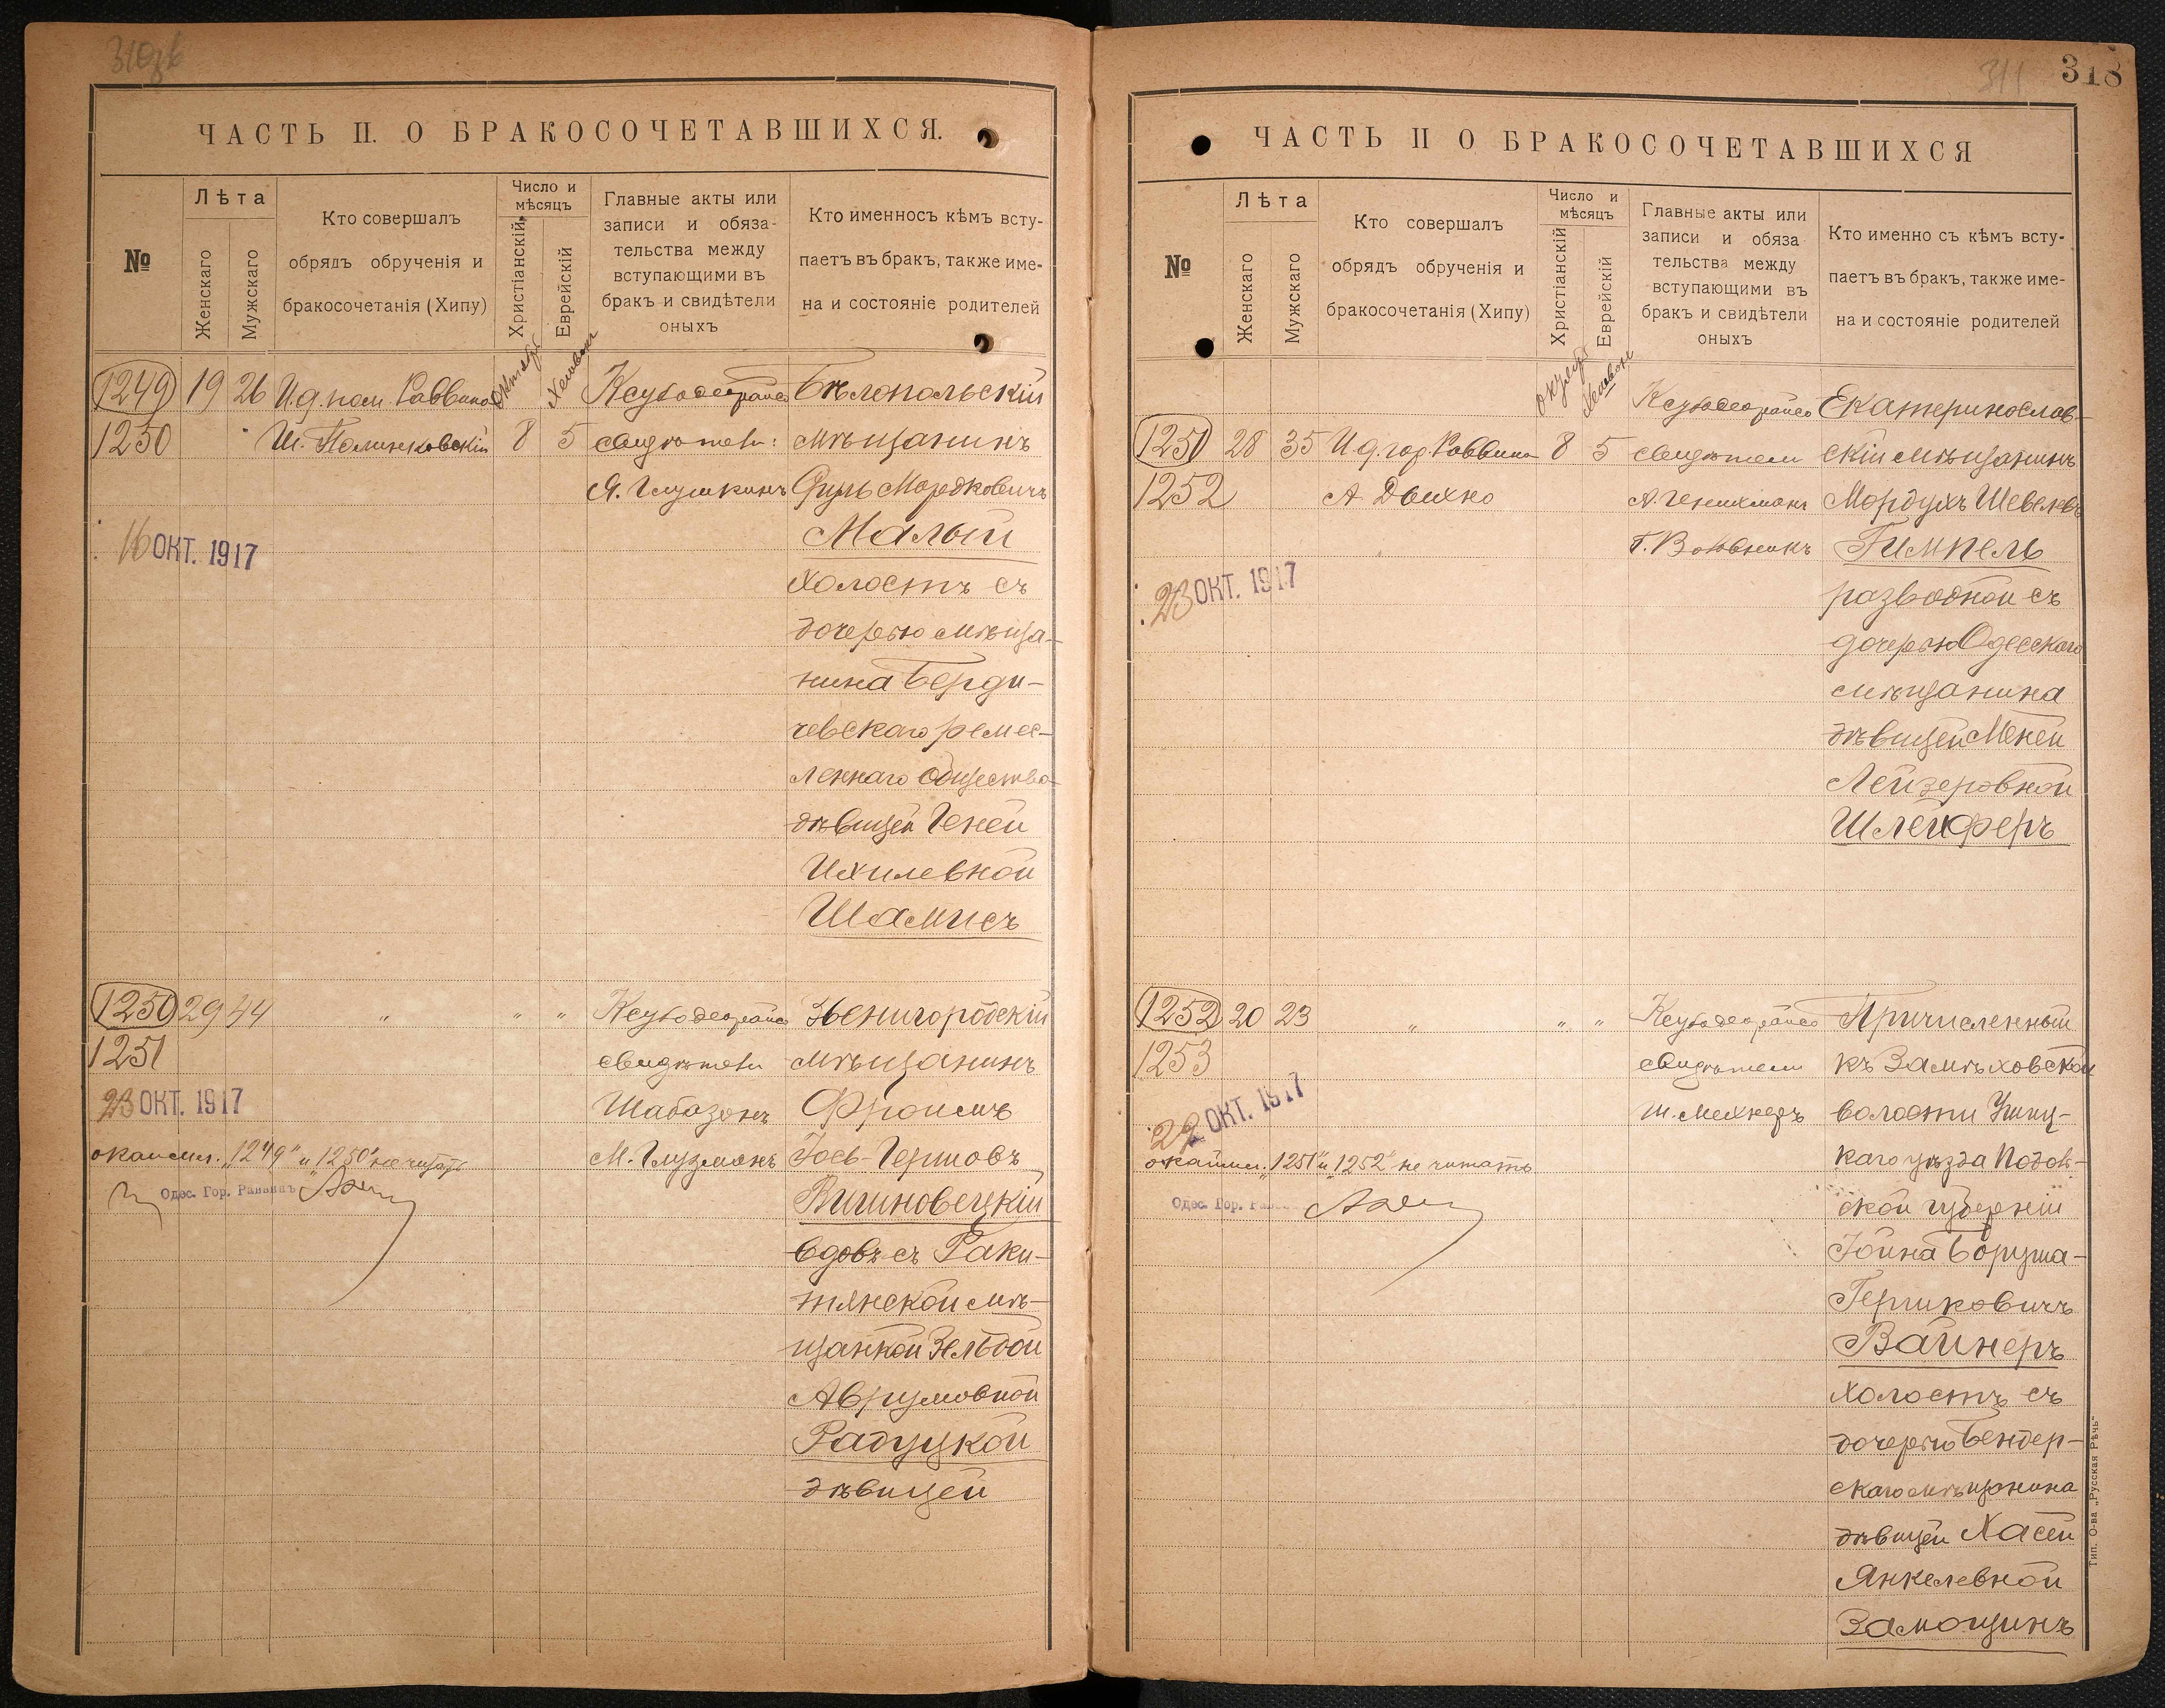 310 зв
ЧАСТЬ II. О БРАКОСОЧЕТАВШИХСЯ.
№
Лѣта
Женскаго
Мужскаго
Кто совершалъ
обрядъ обрученія и
бракосочетанія (Хипу)
Число и
мѣсяцъ
Христіанскій
Еврейскій
Главные акты или
записи и обяза-
тельства между
вступающими въ
бракъ и свидѣтели
оныхъ
Кто именносъ кѣмъ всту-
паетъ въ бракъ, также име-
на и состояніе родителей
Октябр
Хешванъ
1249 19 26 И.д. пом. Раввина
1250 Ш. 8 5
Ксубодеорайсо
свидѣтели:
Я. Глушкинъ
Бѣлопольскій
мѣщанинъ
Сруль Мордковичъ
Малый
холостъ съ
дочерью мѣща-
нина Берди-
чевскаго ремес-
леннаго общества
дѣвицей Геней
Ихилевной
Шамисъ
16 ОКТ. 1917
1250 29 44 " " "
1251
Ксубодеорайсо
свидѣтели
Шабазонъ
М. Глузманъ
Звенигородскій
мѣщанинъ
Фроимъ
Іось-Гершовъ
Вишновецкій
вдовъ съ Раки-
тянской мѣ-
щанкой Зельдой
Аврумовной
Радуцкой
дѣвицей
23 ОКТ. 1917
окаймл. „1249" и „1250" не читать
Одес. Гор. Раввинъ
311
318
ЧАСТЬ II О БРАКОСОЧЕТАВШИХСЯ
№
Лѣта
Женскаго
Мужскаго
Кто совершалъ
обрядъ обрученія и
бракосочетанія (Хипу)
Число и
мѣсяцъ
Христіанскій
Еврейскій
Главные акты или
записи и обяза
тельства между
вступающими въ
бракъ и свидѣтели
оныхъ
Кто именно съ кѣмъ всту-
паетъ въ бракъ, также име-
на и состояніе родителей
1251 28 35 И.д. гор. Раввина 8 5
1252 А. Дыхно
Ксубодеорайсо
свидѣтели
А. Генихманъ
Екатеринослав-
скій мѣщанинъ
Мордухъ Шевелевъ
Гимпель
разводной съ
дочерью Одесскаго
мѣщанина
дѣвицей Меней
Лейзеровной
Шлейферъ
23 ОКТ. 1917
1252 20 23 " " "
1253
Ксубодеорайсо
свидѣтели
Ш. Мехнеръ
Причисленный
къ Замѣховской
волости Ушиц-
каго уѣзда Подоль-
ской губерніи
Іойна Боруха-
Гершковичъ
Вайнеръ
холостъ съ
дочерью Бендер-
скаго мѣщанина
дѣвицей Хасей
Янкелевной
Замощинъ
22 ОКТ. 1917
окаймл. „1251" и „1252" не читать
Одес. Гор.
Тип. О-ва „Русская Рѣчь"